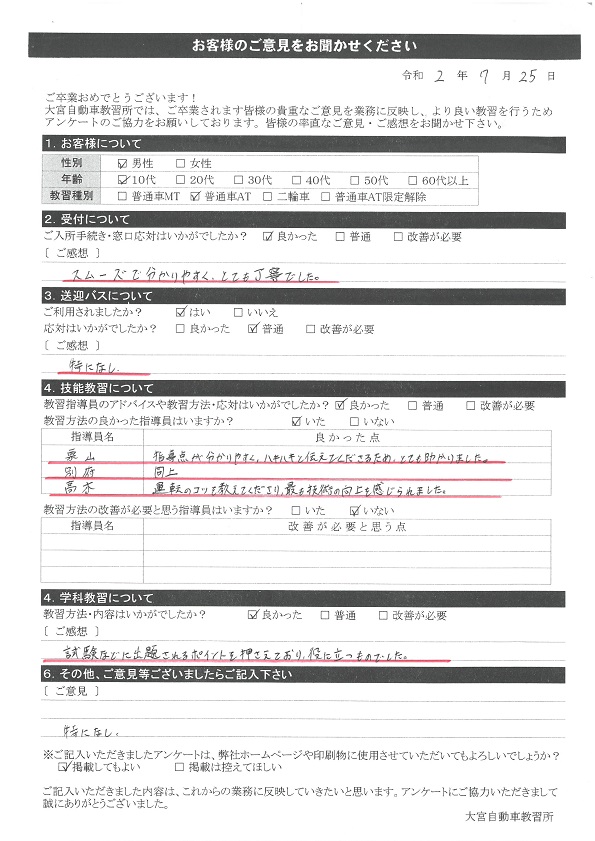 お客様のご意見をお聞かせください
令和 2 年 7 月 25 日
ご卒業おめでとうございます！
大宮自動車教習所では、ご卒業されます皆様の貴重なご意見を業務に反映し、より良い教習を行うため
アンケートのご協力をお願いしております。皆様の率直なご意見・ご感想をお聞かせ下さい。
1. お客様について
性別 ☑男性 □女性
年齢 ☑10代 □20代 □30代 □40代 □50代 □60代以上
教習種別 □普通車MT ☑普通車AT □二輪車 □普通車AT限定解除
2. 受付について
ご入所手続き・窓口応対はいかがでしたか？ ☑良かった □普通 □改善が必要
［ ご感想 ］
スムーズで分かりやすく、とても丁寧でした。
3. 送迎バスについて
ご利用されましたか？ ☑はい □いいえ
応対はいかがでしたか？ □良かった ☑普通 □改善が必要
［ ご感想 ］
特になし.
4. 技能教習について
教習指導員のアドバイスや教習方法・応対はいかがでしたか？ ☑良かった □普通 □改善が必要
教習方法の良かった指導員はいますか？ ☑いた □いない
指導員名 良かった点
栗山 指導点が分かりやすく、ハキハキと伝えてくださるため、とても助かりました。
別府 同上
高木 運転のコツを教えてくださり、最も技術の向上を感じられました。
教習方法の改善が必要と思う指導員はいますか？ □いた ☑いない
指導員名 改善が必要と思う点
4. 学科教習について
教習方法・内容はいかがでしたか？ ☑良かった □普通 □改善が必要
［ ご感想 ］
試験などに出題されるポイントを押さえており、役に立つものでした。
6. その他、ご意見等ございましたらご記入下さい
［ ご意見 ］
特になし.
※ご記入いただきましたアンケートは、弊社ホームページや印刷物に使用させていただいてもよろしいでしょうか？
☑掲載してもよい □掲載は控えてほしい
ご記入いただきました内容は、これからの業務に反映していきたいと思います。アンケートにご協力いただきまして
誠にありがとうございました。
大宮自動車教習所